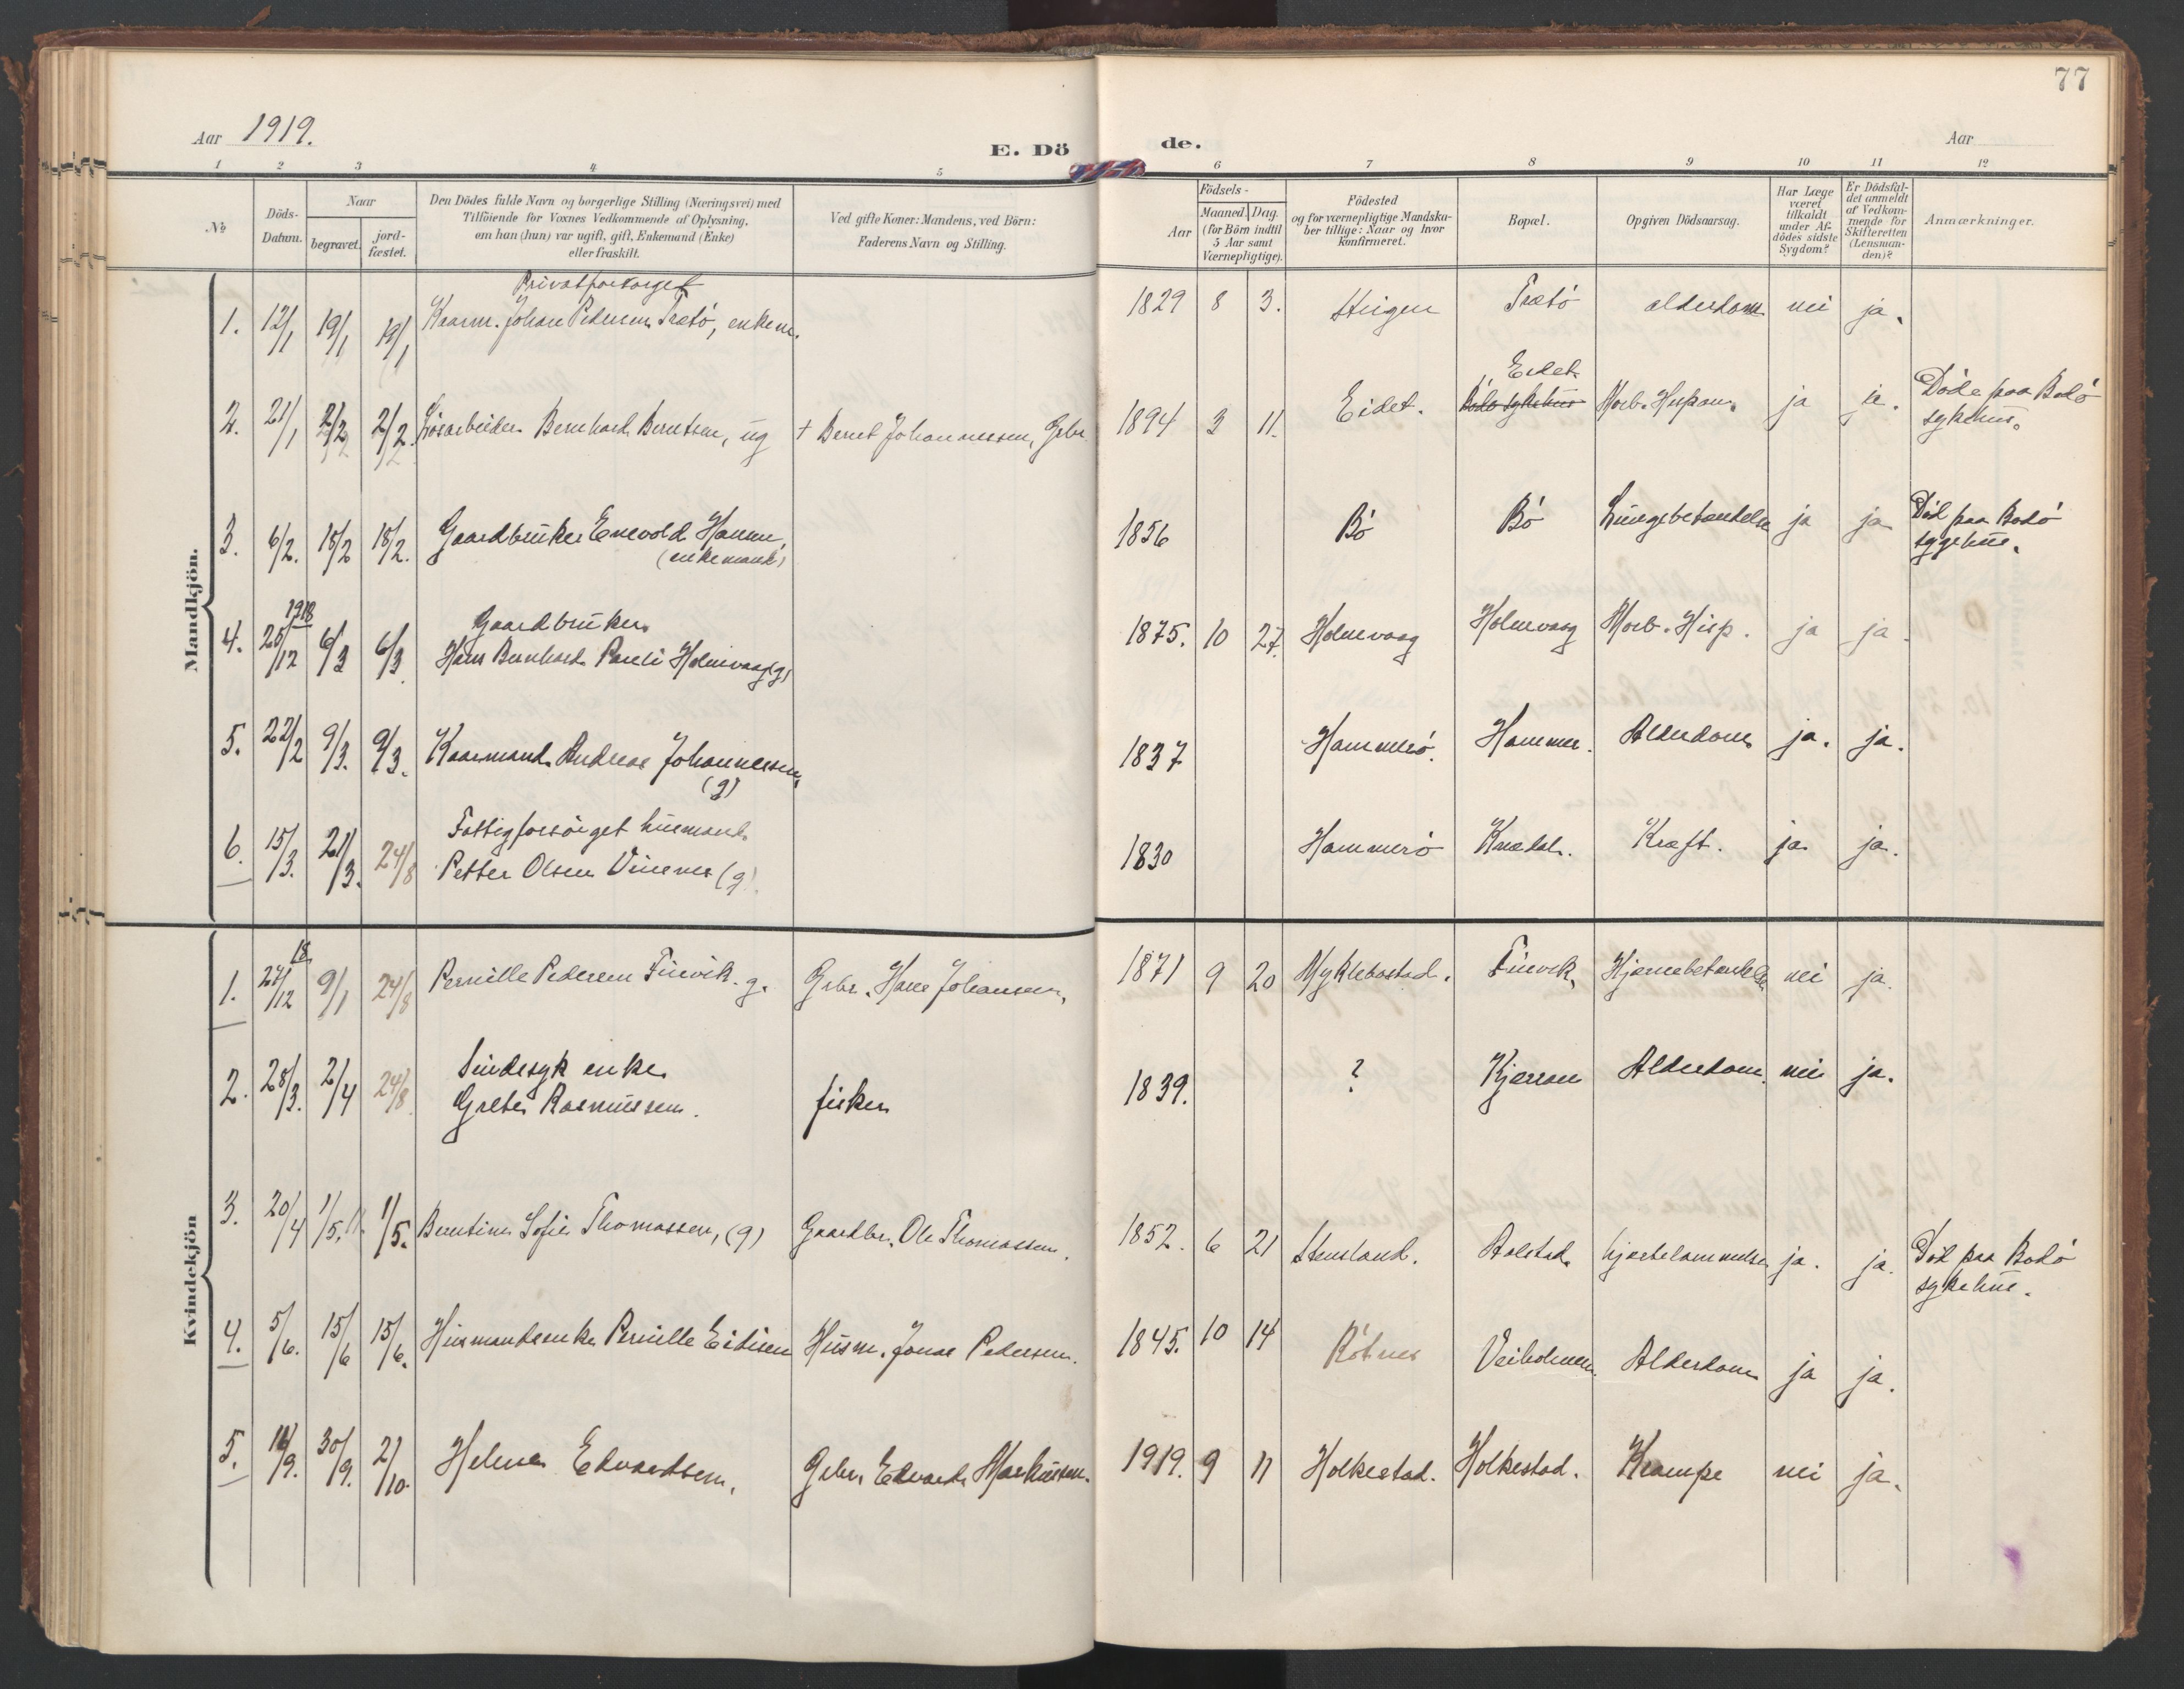 77
Aar 1919.
E. Dö de.
Aar
1 2 3 4 5 6 7 8 9 10 11 12
No
Döds-Datum.
Naar
begravet.
jord-fæstet.
Den Dödes fulde Navn og borgerlige Stilling (Næringsvei) med
Tilföiende for Voxnes Vedkommende af Oplysning,
om han (hun) var ugift, gift, Enkemand (Enke)
eller fraskilt.
Ved gifte Koner: Mandens, ved Börn:
Faderens Navn og Stilling.
Födsels-
Aar
Maaned. Dag.
(for Börn indtil
5 Aar samt
Værnepligtige).
Födested
og for værnepligtige Mandska-
ber tillige: Naar og hvor
Konfirmeret.
Bopæl.
Opgiven Dödsaarsag.
Har Læge
været
tilkaldt
under Af-
dödes sidste
Sygdom?
Er Dödsfal-
det anmeldt
af Vedkom-
mende for
Skifteretten
(Lensman-
den)?
Anmærkninger.
Mandkjön.
Privatforsørget
1. 12/1 19/1 19/1 Kaarm. Johan Pedersen Trætö, enkem. 1829 8 3. Steigen Trætö alderdom nei ja.
Eidet
2. 21/1 2/2 2/2. Lösarbeider Bernhard Berntsen, ug + Bernt Johannessen, Gbr. 1894 3 11. Eidet. Bodö sykehus Morb. Hispan. ja ja. Döde paa Bodö
sykehus.
3. 6/2. 18/2 18/2. Gaardbruker Enevold Hansen, 1856 Bö Bö Lungebetændelse ja ja Död paa Bodö
(enkemand) sygehus.
1918
Gaardbruker
4. 26/12 6/3 6/3 Hans Bernhard Pauli Holmvaag (g) 1875. 10 27. Holmvaag Holmvaag Morb. Hisp. ja ja.
5. 22/2 9/3. 9/3. Kaarmand Andreas Johannessen 1837 Hammerö. Hammer. Alderdom ja. ja.
(g)
Fattigforsörget husmand
6. 15/3. 21/3. 24/8 Petter Olsen (g). 1830 Hammerö Kræft. ja ja.
Kvindekjön
18
1. 27/12 9/1 24/8 Pernille Pedersen Finvik. g. Gbr. Hans Johansen, 1871 9 20 Myklebostad. Finvik. Hjernebetændelse nei ja.
Sindssyk enke
2. 28/3. 2/4 24/8 Grete Rasmussen. fisker 1839. ? Kjerran Alderdom. nei ja.
3. 20/4 1/5. 1/5. Berntine Sofie Thomassen, (g) Gaardbr. Ole Thomassen. 1852. 6 21 Stensland. Aalstad hjertelammelse ja. ja. Död paa Bodö
sykehus.
4. 5/6. 15/6 15/6. Husmandsenke Pernille Eidissen Husm. Jonas Pedersen. 1845. 10 14 Rötnes Veiholmen. Alderdom ja ja.
5. 16/9. 30/9. 2/10. Helene Edvardsen, Gbr. Edvard Markussen. 1919. 9 11 Holkestad. Holkestad. Krampe nei ja.